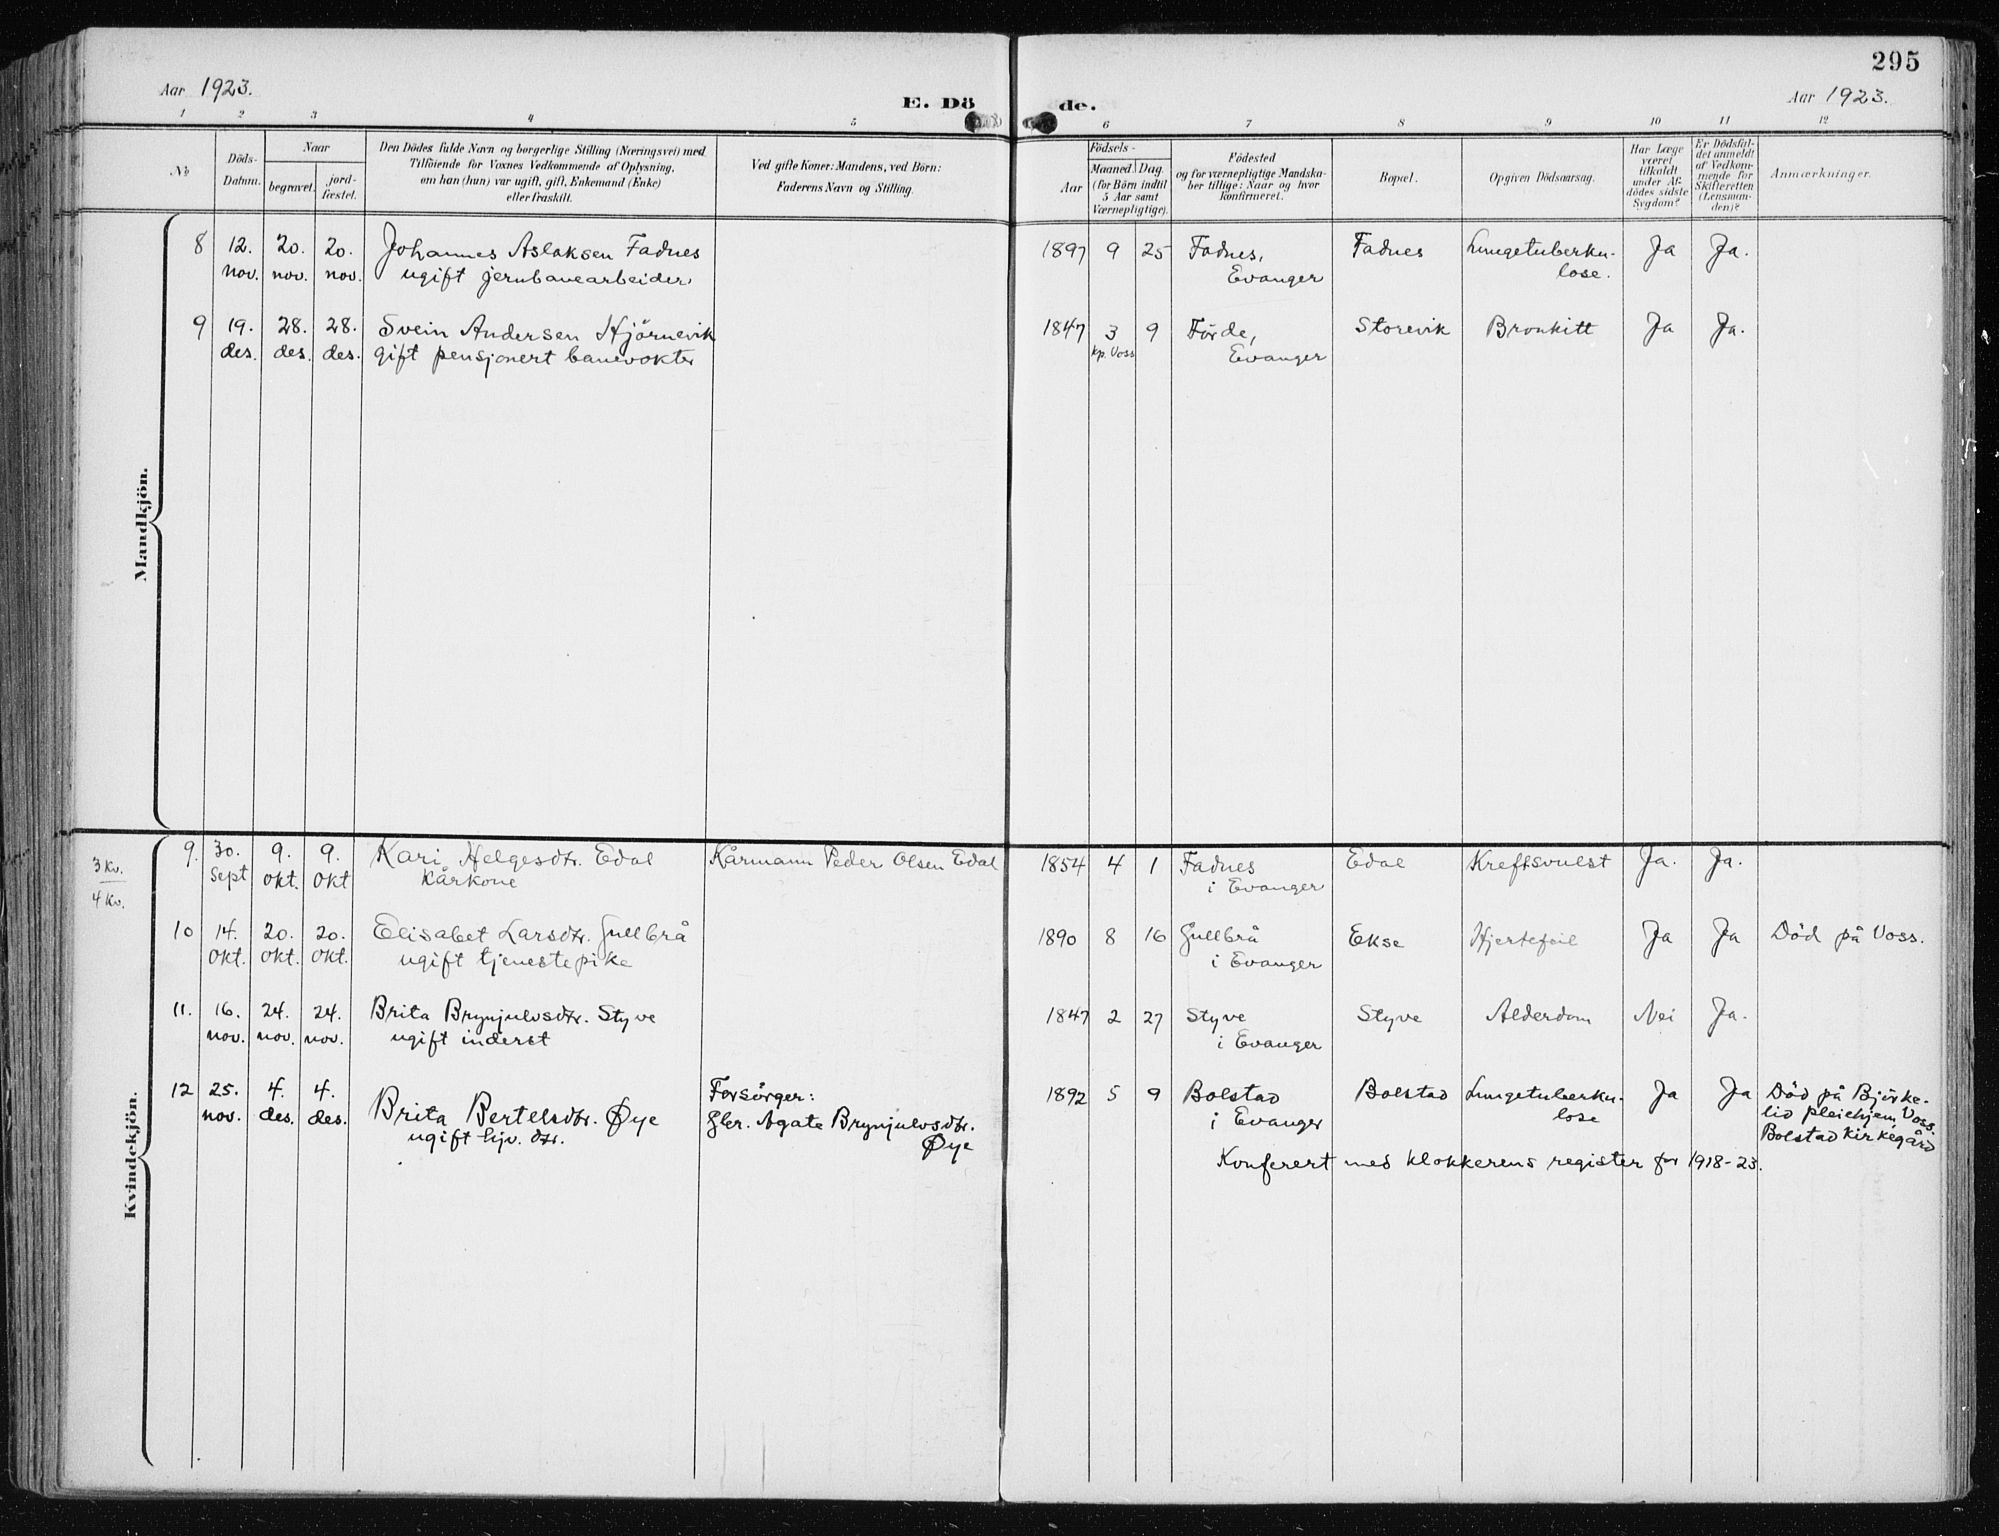 295
Aar 1923.
E. Dö
de.
Aar 1923.
1 2 3 4 5 6 7 8 9 10 11 12
No
Döds-
Datum.
Naar
begravet.
jord-
fæstet.
Den Dödes fulde Navn og borgerlige Stilling (Næringsvei) med
Tilföiende for Voxnes Vedkommende af Oplysning,
om han (hun) var ugift, gift, Enkemand (Enke)
eller fraskilt.
Ved gifte Koner: Mandens, ved Börn:
Faderens Navn og Stilling.
Födsels-
Aar
Maaned.
Dag.
(for Börn indtil
5 Aar samt
Værnepligtige).
Födested
og for værnepligtige Mandska-
ber tillige: Naar og hvor
konfirmeret.
Bopæl.
Opgiven Dödsaarsag.
Har Læge
været
tilkaldt
under Af-
dödes sidste
Sygdom?
Er Dödsfal-
det anmeldt
af Vedkom-
mende for
Skifteretten
(Lensman-
den)?
Anmærkninger.
Mandkjön.
8 12. 20. 20. Johannes Aslaksen Fadnes 1897 9 25 Fadnes, Fadnes Lungetuberku- Ja Ja.
nov. nov. nov. ugift jernbanearbeider Evanger lose.
9 19. 28. 28. Svein Andersen Hjörnevik 1847 3 9 Förde, Storevik Bronkitt Ja Ja.
des. des. des. gift pensjonert banevokter kp. Voss Evanger
Kvindekjön.
3 Kv.
4 Kv.
9. 30. 9. 9. Kari Helgesdtr. Edal Kårmann Peder Olsen Edal 1854 4 1 Fadnes Edal Kreftsvulst Ja. Ja.
sept okt. okt kårkone i Evanger
10 14. 20. 20. Elisabet Larsdtr. Gullbrå 1890 8 16 Gullbrå Ekse Hjertefeil Ja Ja Död på Voss.
okt. okt. okt. ugift tjenestepike i Evanger
11. 16. 24. 24. Brita Brynjulvsdtr. Styve 1847 2 27 Styve Styve Alderdom Nei Ja.
nov. nov. nov. ugift inderst i Evanger
12 25. 4. 4. Brita Bertelsdtr. Øye Forsörger: 1892 5 9 Bolstad Bolstad Lungetuberku- Ja Ja Död på Björke-
nov. des. des. ugift hjv. dtr. Gbr. Agate Brynjulvsdtr. i Evanger lose lid pleiehjem, Voss.
Øye Bolstad kirkegård
Konferert med klokkerens register for 1918-23.